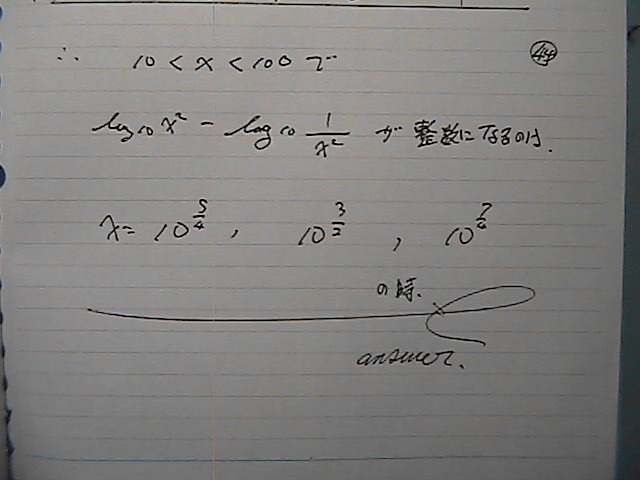 ∴ 10 < x < 100 で 44
log₁₀ x² - log₁₀ 1/x² が 整数になるのは、
x = 10^(5/4) , 10^(3/2) , 10^(7/4)
の時.
answer.